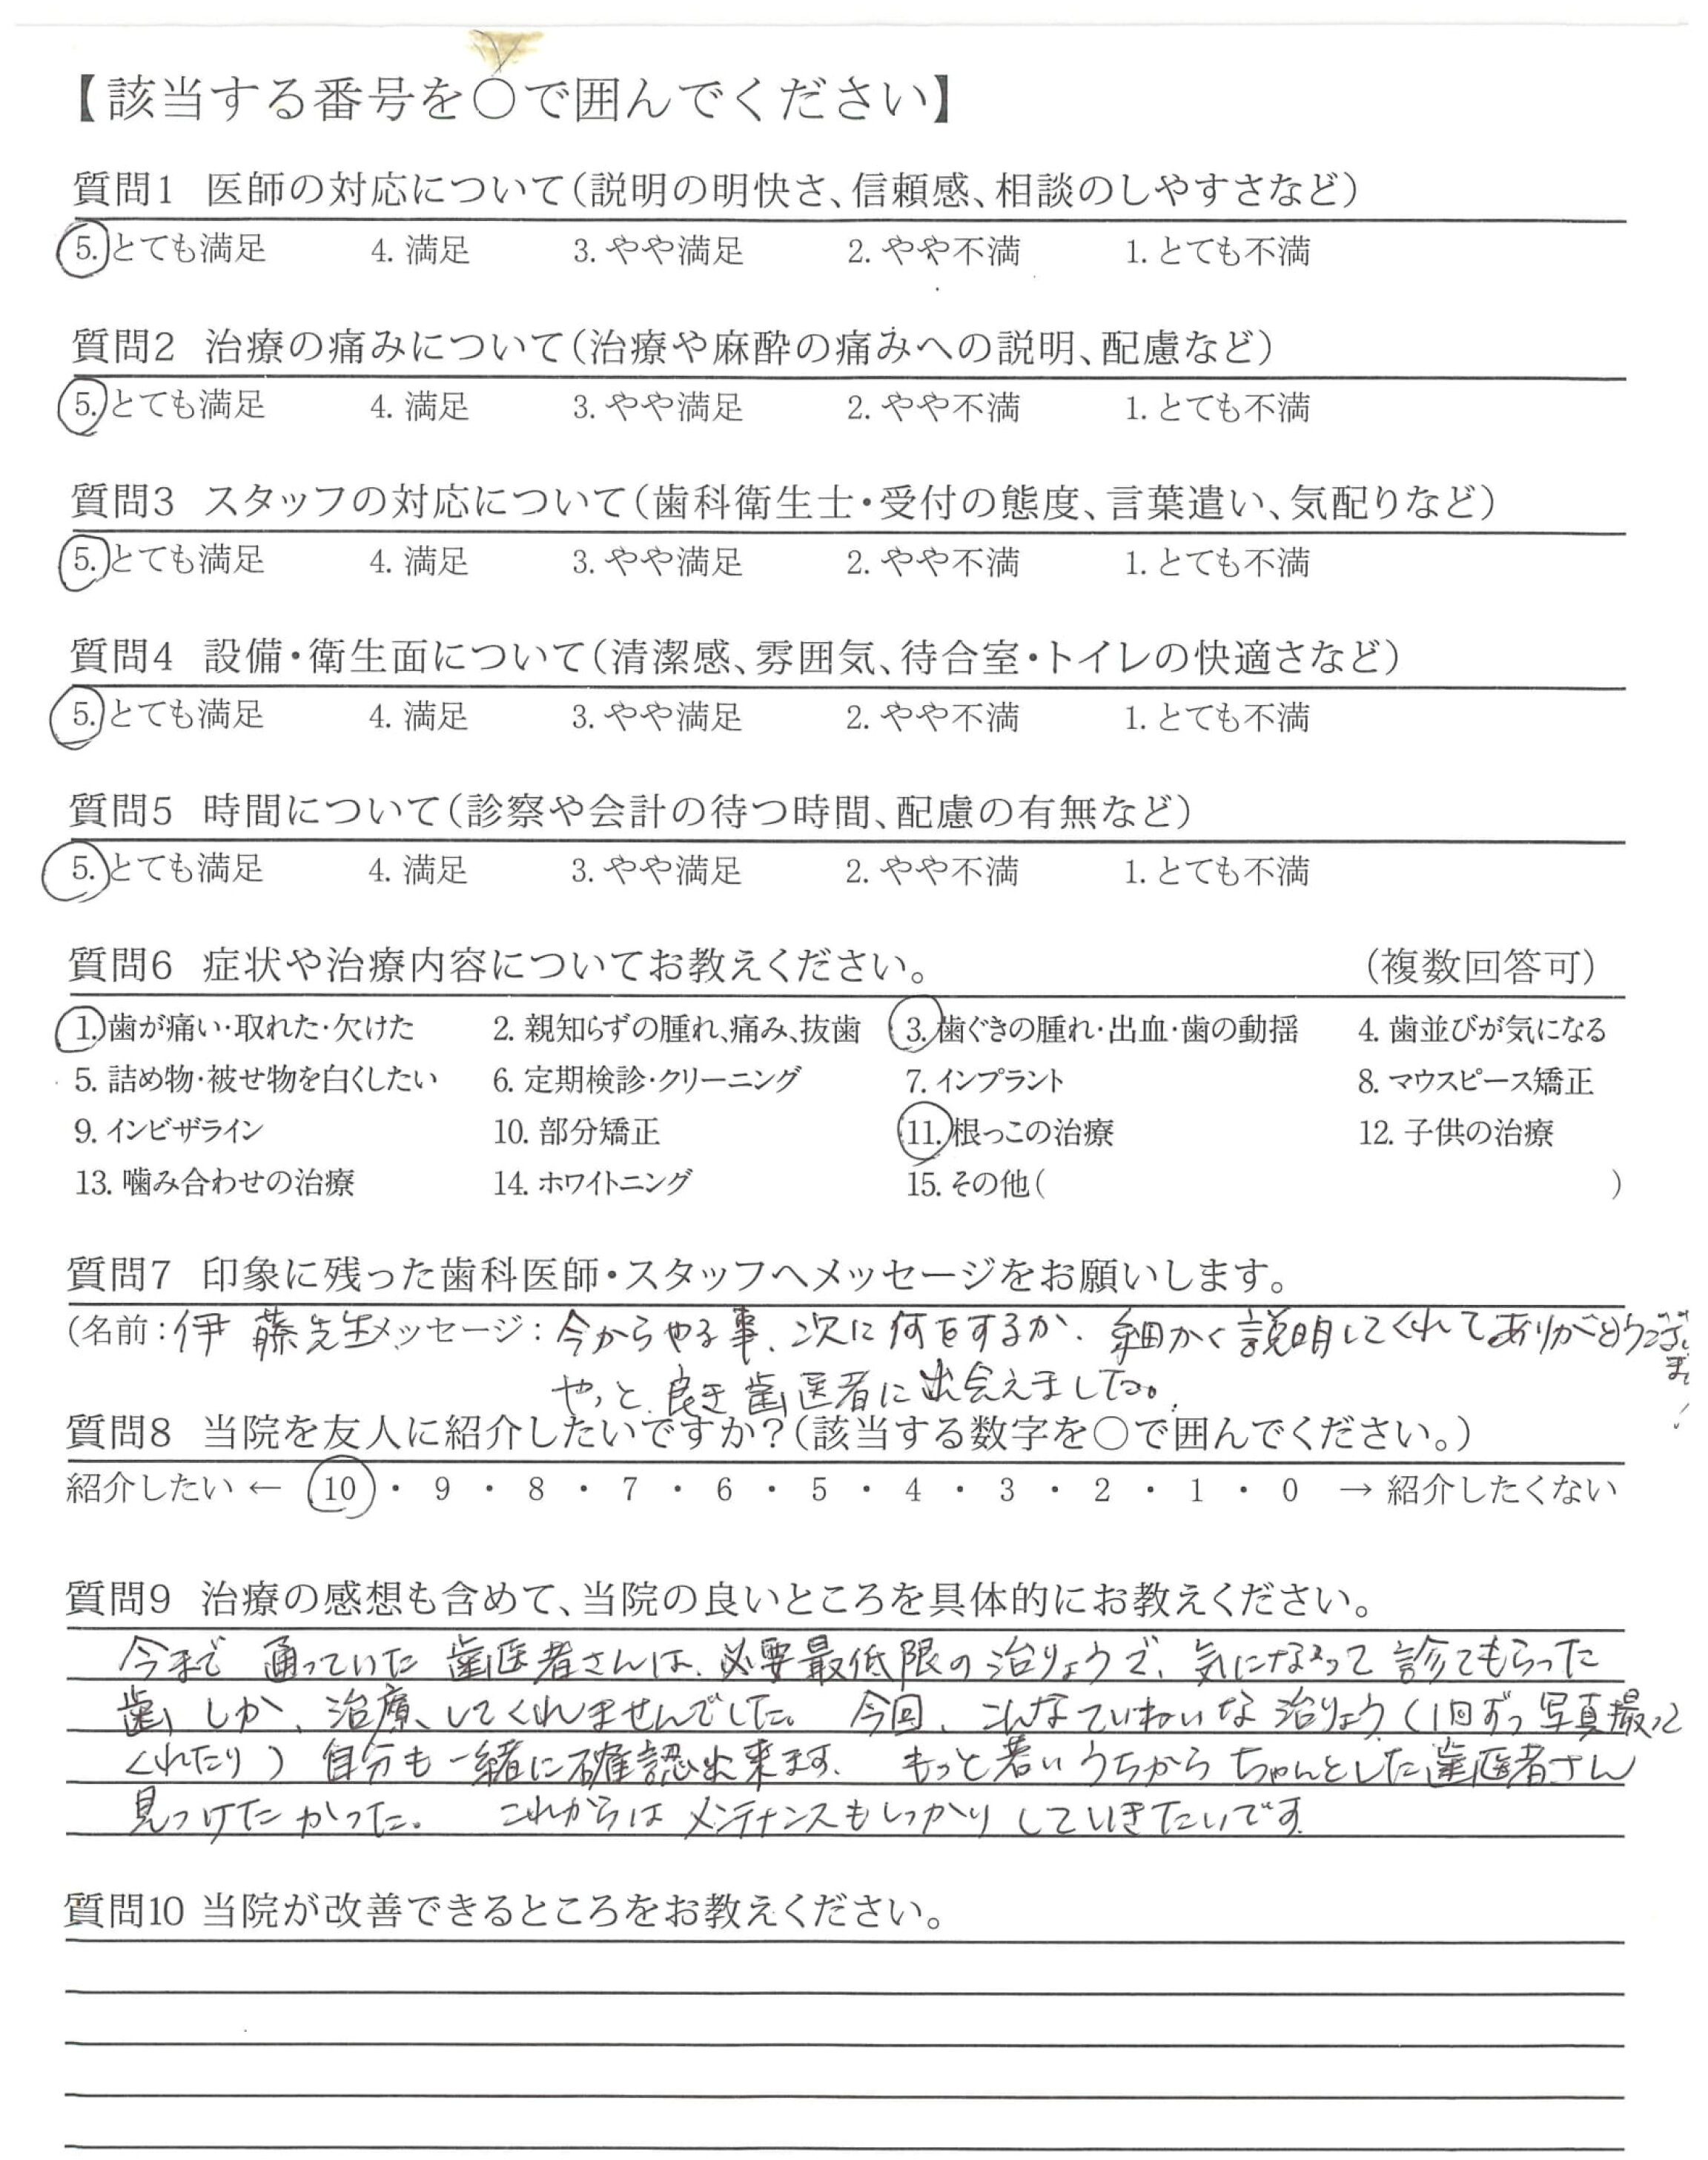 【該当する番号を〇で囲んでください】
質問1 医師の対応について(説明の明快さ、信頼感、相談のしやすさなど)
5. とても満足 4. 満足 3. やや満足 2. やや不満 1. とても不満
質問2 治療の痛みについて(治療や麻酔の痛みへの説明、配慮など)
5. とても満足 4. 満足 3. やや満足 2. やや不満 1. とても不満
質問3 スタッフの対応について(歯科衛生士・受付の態度、言葉遣い、気配りなど)
5. とても満足 4. 満足 3. やや満足 2. やや不満 1. とても不満
質問4 設備・衛生面について(清潔感、雰囲気、待合室・トイレの快適さなど)
5. とても満足 4. 満足 3. やや満足 2. やや不満 1. とても不満
質問5 時間について(診察や会計の待つ時間、配慮の有無など)
5. とても満足 4. 満足 3. やや満足 2. やや不満 1. とても不満
質問6 症状や治療内容についてお教えください。 (複数回答可)
1. 歯が痛い・取れた・欠けた 2. 親知らずの腫れ、痛み、抜歯 3. 歯ぐきの腫れ・出血・歯の動揺 4. 歯並びが気になる
5. 詰め物・被せ物を白くしたい 6. 定期検診・クリーニング 7. インプラント 8. マウスピース矯正
9. インビザライン 10. 部分矯正 11. 根っこの治療 12. 子供の治療
13. 噛み合わせの治療 14. ホワイトニング 15. その他( )
質問7 印象に残った歯科医師・スタッフへメッセージをお願いします。
(名前:伊藤先生 メッセージ:今からやる事、次に何をするか、細かく説明してくれてありがとうございます!
やっと、良き歯医者に出会えました。
質問8 当院を友人に紹介したいですか?(該当する数字を〇で囲んでください。)
紹介したい ← 10 ・ 9 ・ 8 ・ 7 ・ 6 ・ 5 ・ 4 ・ 3 ・ 2 ・ 1 ・ 0 → 紹介したくない
質問9 治療の感想も含めて、当院の良いところを具体的にお教えください。
今まで 通っていた 歯医者さんは、必要最低限の治りょうで、気になって 診てもらった
歯しか、治療、してくれませんでした。 今回、こんなていねいな 治りょう(1回ずつ写真撮って
くれたり)自分も一緒に確認出来ます。 もっと若いうちから ちゃんとした歯医者さん
見つけたかった。 これからは メンテナンスもしっかり していきたいです。
質問10 当院が改善できるところをお教えください。